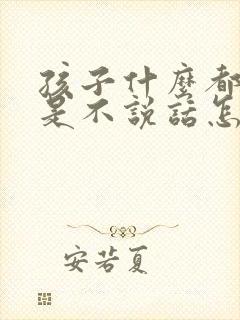 孩子什麼都
是不說話怎
安若夏